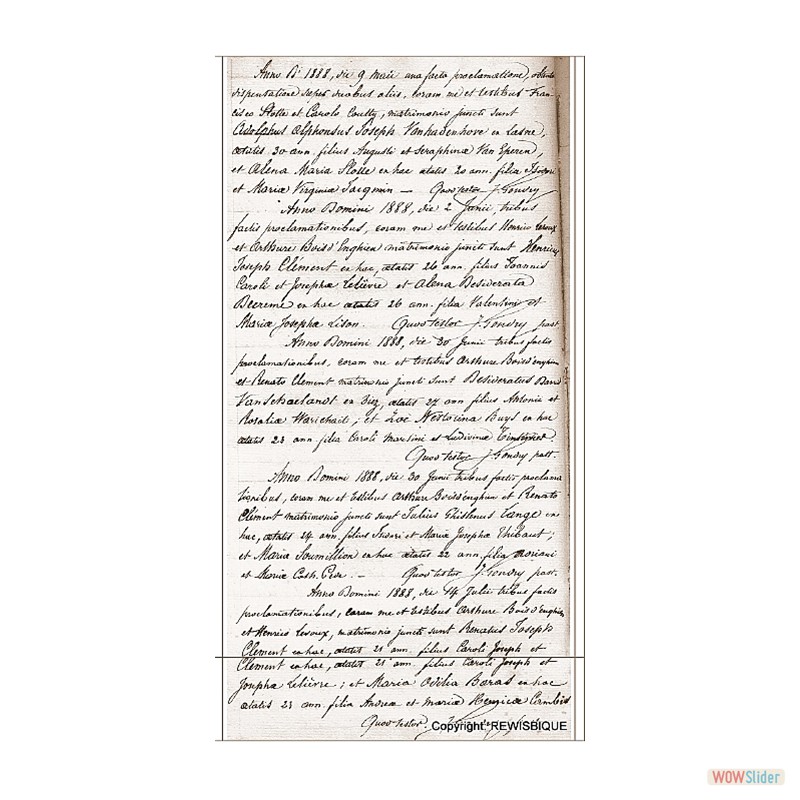 Anno Di 1888, die 9 Maii una facta proclamatione, obtenta
dispensatione super duabus aliis, coram me et testibus Fran-
cisco Stolle et Carolo Coutty, matrimonio juncti sunt
Adolphus Alphonsus Joseph Vanhadenhove ex Lasne,
aetatis 30 ann. filius Augusti et Seraphinae Van Eperen,
et Alena Maria Stolle ex hac aetatis 20 ann. filia Isidori
et Mariae Virginiae Jacqmin — Quod testor J. Gondry
Anno Domini 1888, die 2 Junii, tribus
factis proclamationibus, coram me et testibus Henrico Leroux
et Arthure Boisd'Enghien matrimonio juncti sunt Henricus
Joseph Clément ex hac, aetatis 26 ann. filius Joannis
Caroli et Josephae Lelièvre et Alena Desiderata
Decreme ex hac aetatis 26 ann. filia Valentini et
Mariae Josephae Lison. Quod testor J. Gondry past.
Anno Domini 1888, die 30 Junii tribus factis
proclamationibus, coram me et testibus Arthure Boisd'enghien
et Renato Clement matrimonio juncti sunt Desideratus David
VanSchaelandt ex aetatis 27 ann filius Antonii et
Rosaliae Warichait, et Zoé Nestorina Buys ex hac
aetatis 23 ann. filia Caroli Martini et Ludivinae
Quod testor J. Gondry past.
Anno Domini 1888, die 30 Junii tribus factis proclama
tionibus, coram me et testibus Arthure Boisd'enghien et Renato
Clément matrimonio juncti sunt Julius Ghislenus Lange ex
hac, aetatis 24 ann. filius et Mariae Josephae Thibaut;
et Maria Soumillion ex hac aetatis 22 ann. filia
et Mariae Cath. — Quod testor J. Gondry past.
Anno Domini 1888, die 14 Julii tribus factis
proclamationibus, coram me et testibus Arthure Boisd'Enghien
et Henrico Leroux, matrimonio juncti sunt Renatus Joseph
Clement ex hac, aetatis 21 ann. filius Caroli Joseph et
Clement ex hac, aetatis 21 ann. filius Caroli Joseph et
Josepha Lelièvre; et Maria Odilia Baras ex hac
aetatis 23 ann. filia Andreae et Mariae
Quod testor
Copyright REWISBIQUE
WOWSlider